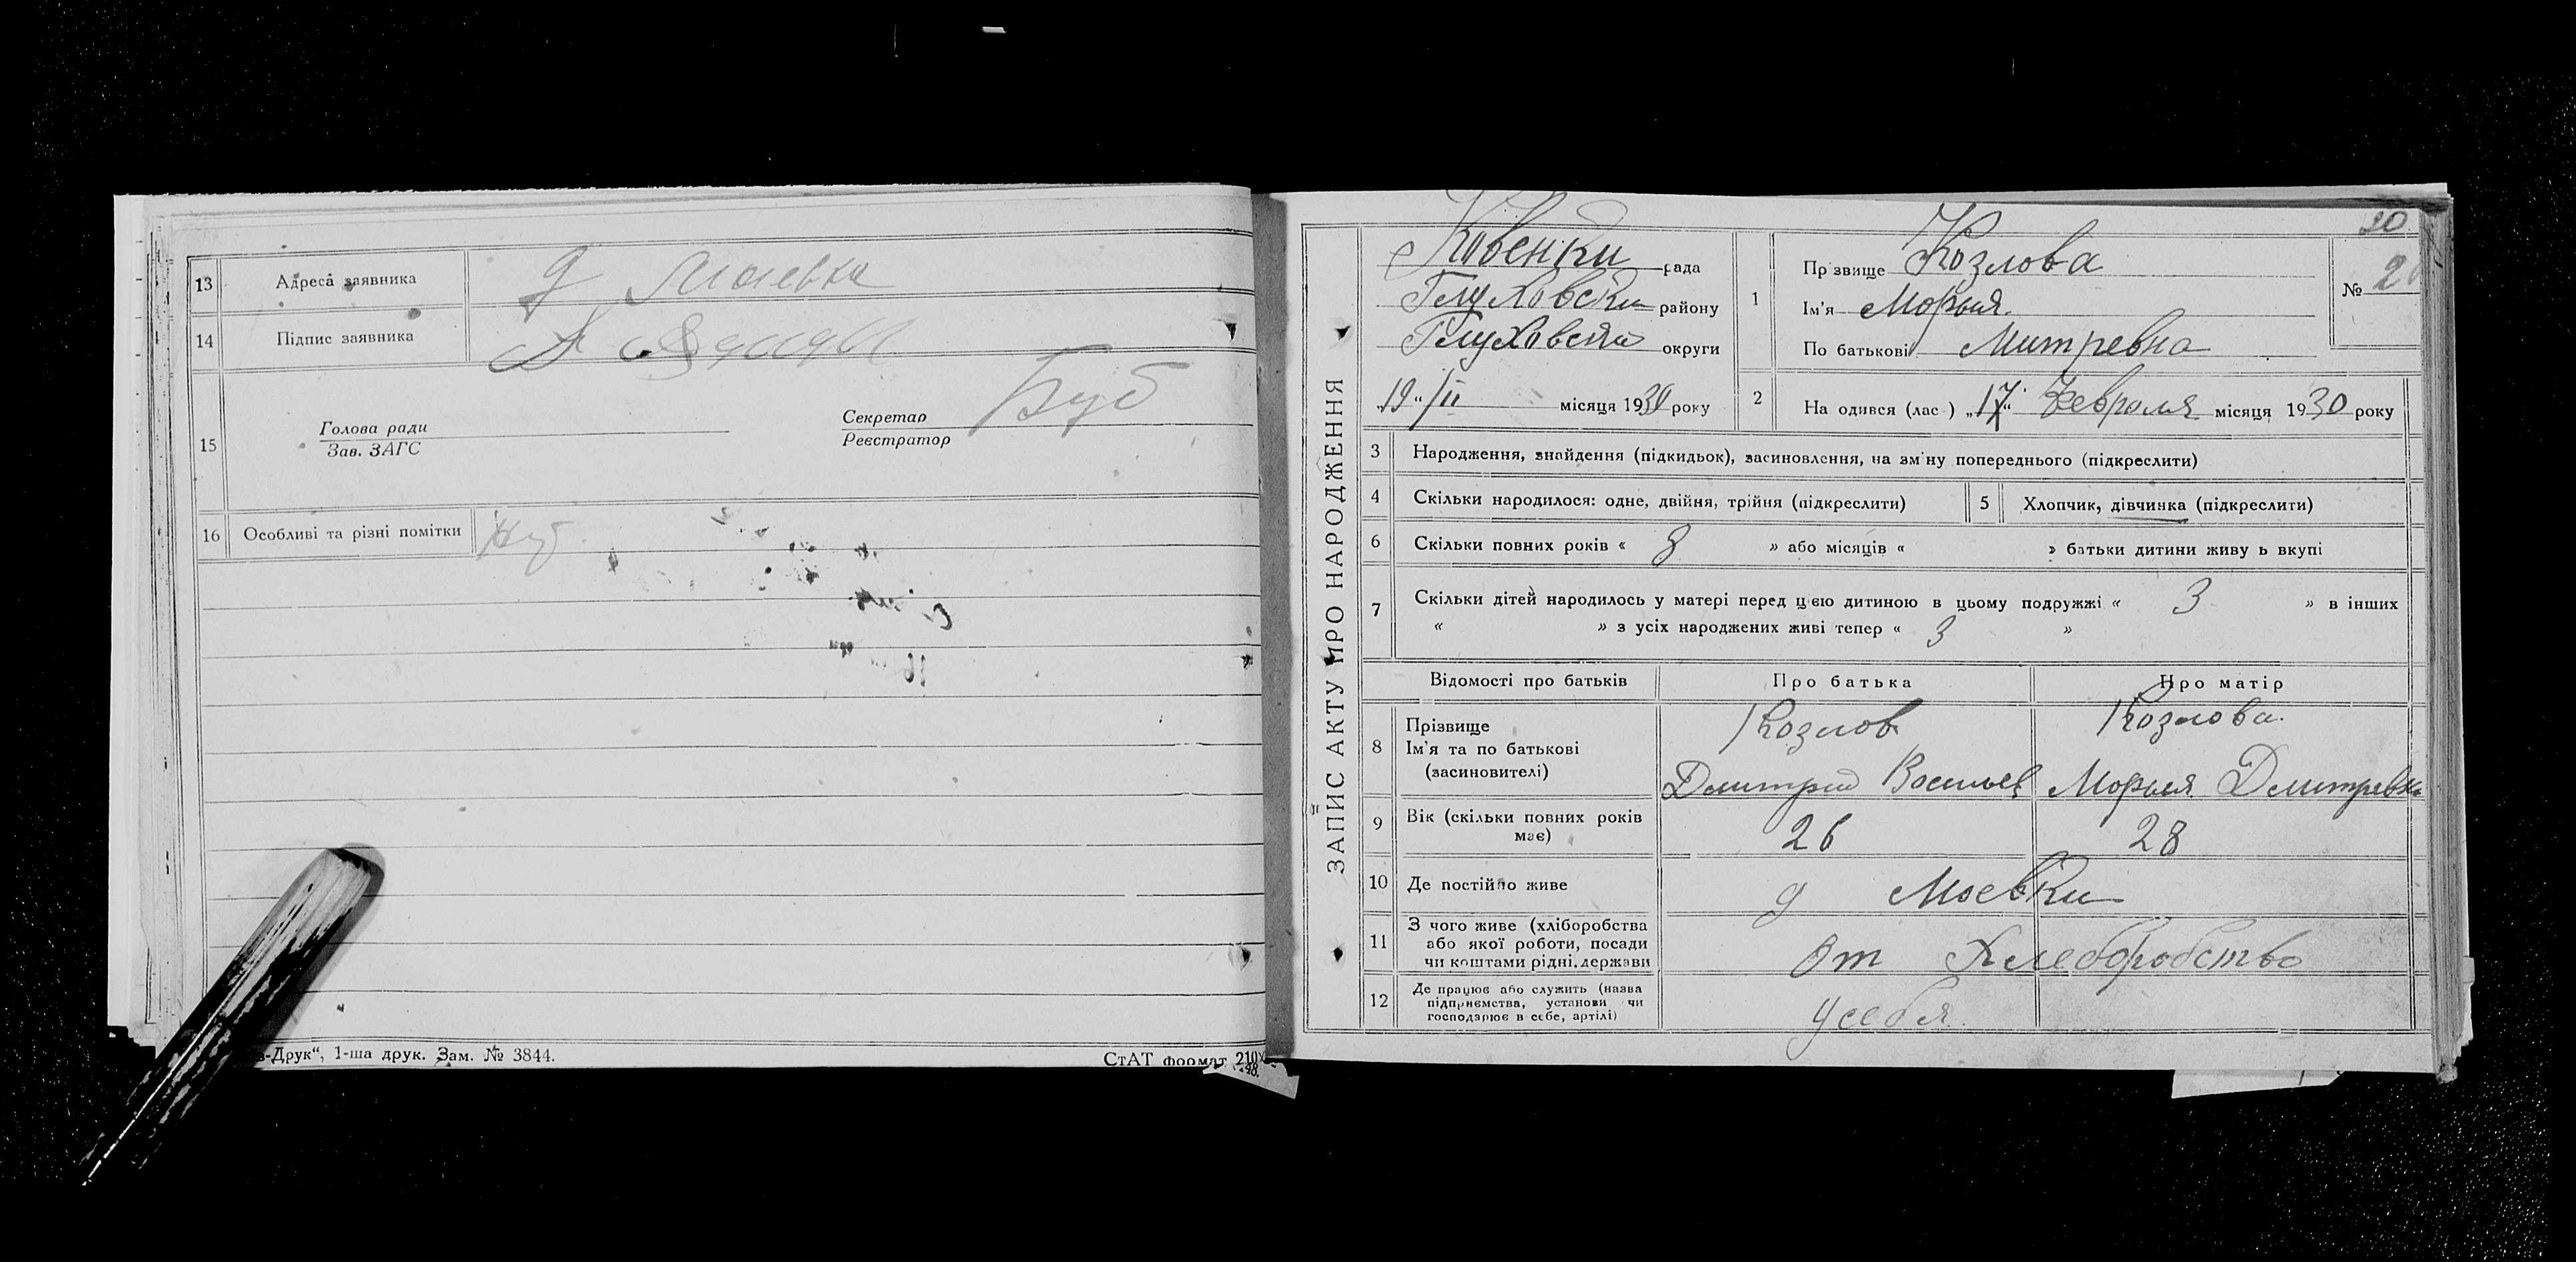 13 Адреса заявника д Моевка
14 Підпис заявника
15 Голова ради
Зав. ЗАГС
Секретар
Реєстратор
16 Особливі та різні помітки
-Друк“, 1-ша друк. Зам. № 3844.
СтАТ формат 210X
ЗАПИС АКТУ ПРО НАРОДЖЕННЯ
20
Ковенки рада
Глуховски району
округи
19 „/II місяця 1930 року
1 Прізвище Козлова
Ім'я Морыя.
По батькові Митревна
№ 20
2 На одився (лас ) „17“ Февроля місяця 1930 року
3 Народження, знайдення (підкидьок), засиновлення, на зміну попереднього (підкреслити)
4 Скільки народилося: одне, двійня, трійня (підкреслити)
5 Хлопчик, дівчинка (підкреслити)
6 Скільки повних років « 8 » або місяців « » батьки дитини живу ь вкупі
7 Скільки дітей народилось у матері перед цією дитиною в цьому подружжі « 3 » в інших
« » з усіх народжених живі тепер « 3 »
Відомості про батьків Про батька Про матір
8 Прізвище
Ім'я та по батькові
(засиновителі)
Козлов
Дмитрий Васильев
Козлова.
Морыя Дмитревна
9 Вік (скільки повних років
має)
26 28
10 Де постійно живе д Моевки
11 З чого живе (хліборобства
або якої роботи, посади
чи коштами рідні, держави
От Хлеборобство
12 Де працює або служить (назва
підприємства, установи чи
господарює в себе, артілі)
усебя